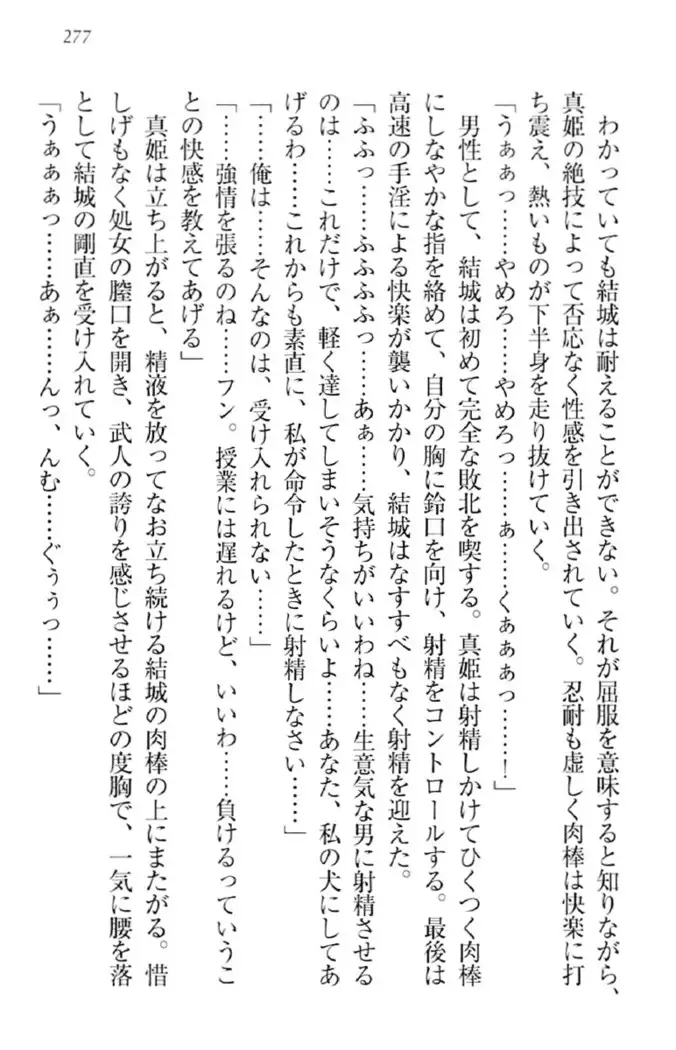 277
わかっていても結城は耐えることができない。それが屈服を意味すると知りながら、
真姫の絶技によって否応なく性感を引き出されていく。忍耐も虚しく肉棒は快楽に打
ち震え、熱いものが下半身を走り抜けていく。
「うぁぁっ……やめろ……やめろっ……ぁ……くぁぁぁっ……！」
男性として、結城は初めて完全な敗北を喫する。真姫は射精しかけてひくつく肉棒
にしなやかな指を絡めて、自分の胸に鈴口を向け、射精をコントロールする。最後は
高速の手淫による快楽が襲いかかり、結城はなすすべもなく射精を迎えた。
「ふふっ……ふふふふっ……あぁ……気持ちがいいわね……生意気な男に射精させる
のは……これだけで、軽く達してしまいそうなくらいよ……あなた、私の犬にしてあ
げるわ……これからも素直に、私が命令したときに射精しなさい……」
「……俺は……そんなのは、受け入れられない……」
「……強情を張るのね……フン。授業には遅れるけど、いいわ……負けるっていうこ
との快感を教えてあげる」
真姫は立ち上がると、精液を放ってなお立ち続ける結城の肉棒の上にまたがる。惜
しげもなく処女の膣口を開き、武人の誇りを感じさせるほどの度胸で、一気に腰を落
として結城の剛直を受け入れていく。
「うぁぁぁっ……あぁ……んっ、んむ……ぐぅぅっ……」